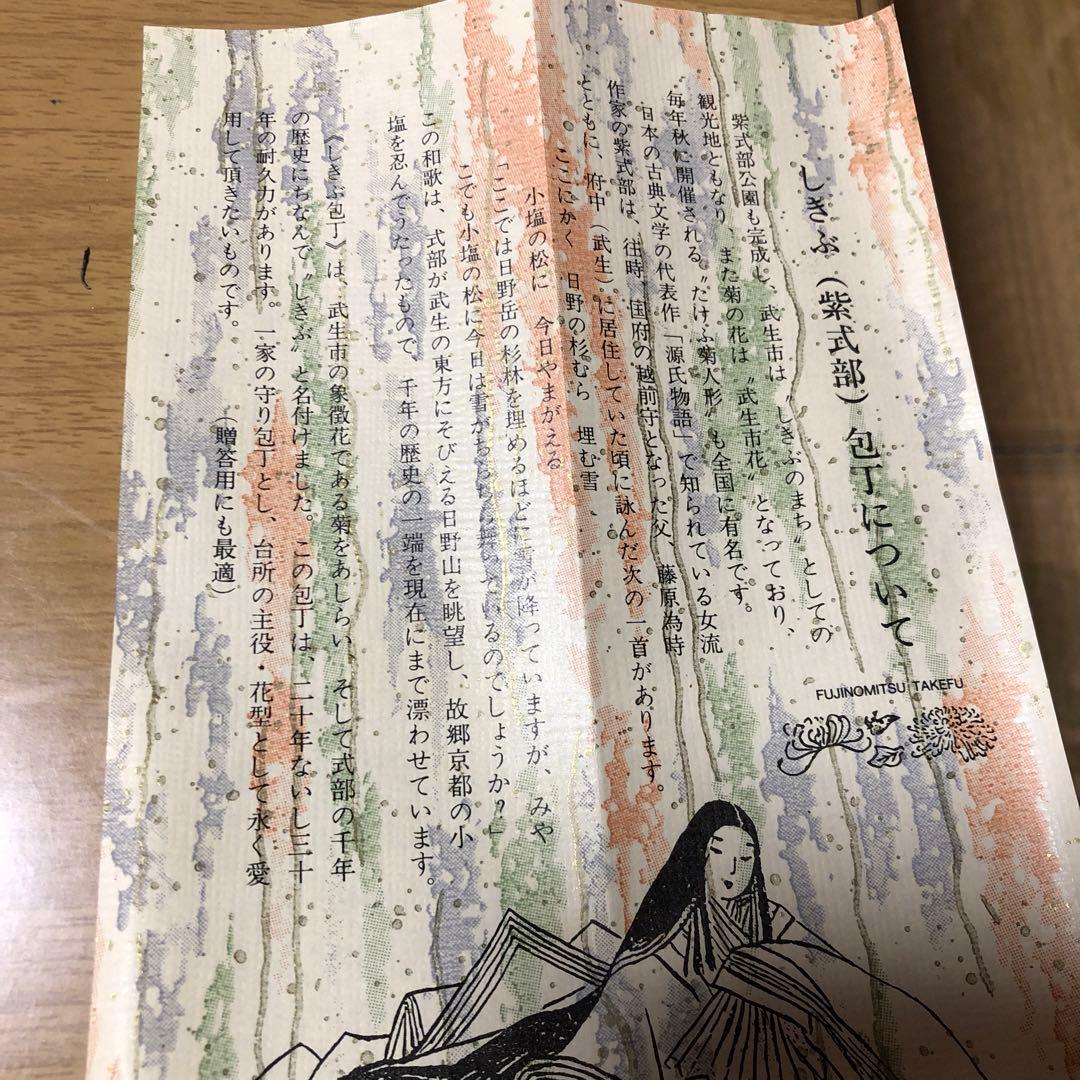 しきぶ(紫式部)包丁について
FUJINOMITSU TAKEFU
紫式部公園も完成し、武生市は〝しきぶのまち〟としての
観光地ともなり、また菊の花は〝武生市花〟となっており、
毎年秋に開催される〝たけふ菊人形〟も全国に有名です。
日本の古典文学の代表作「源氏物語」で知られている女流
作家の紫式部は、往時、国府の越前守となった父、藤原為時
とともに、府中(武生)に居住していた頃に詠んだ次の一首があります。
ここにかく 日野の杉むら 埋む雪
小塩の松に 今日やまがえる
「ここでは日野岳の杉林を埋めるほどに雪が降っていますが、みや
こでも小塩の松に今日は雪がちらちら舞っているのでしょうか?」
この和歌は、式部が武生の東方にそびえる日野山を眺望し、故郷京都の小
塩を忍んでうたったもので、千年の歴史の一端を現在にまで漂わせています。
〈しきぶ包丁〉は、武生市の象徴花である菊をあしらい、そして式部の千年
の歴史にちなんで〝しきぶ〟と名付けました。この包丁は、二十年ないし三十
年の耐久力があります。一家の守り包丁とし、台所の主役・花型として永く愛
用して頂きたいものです。
(贈答用にも最適)